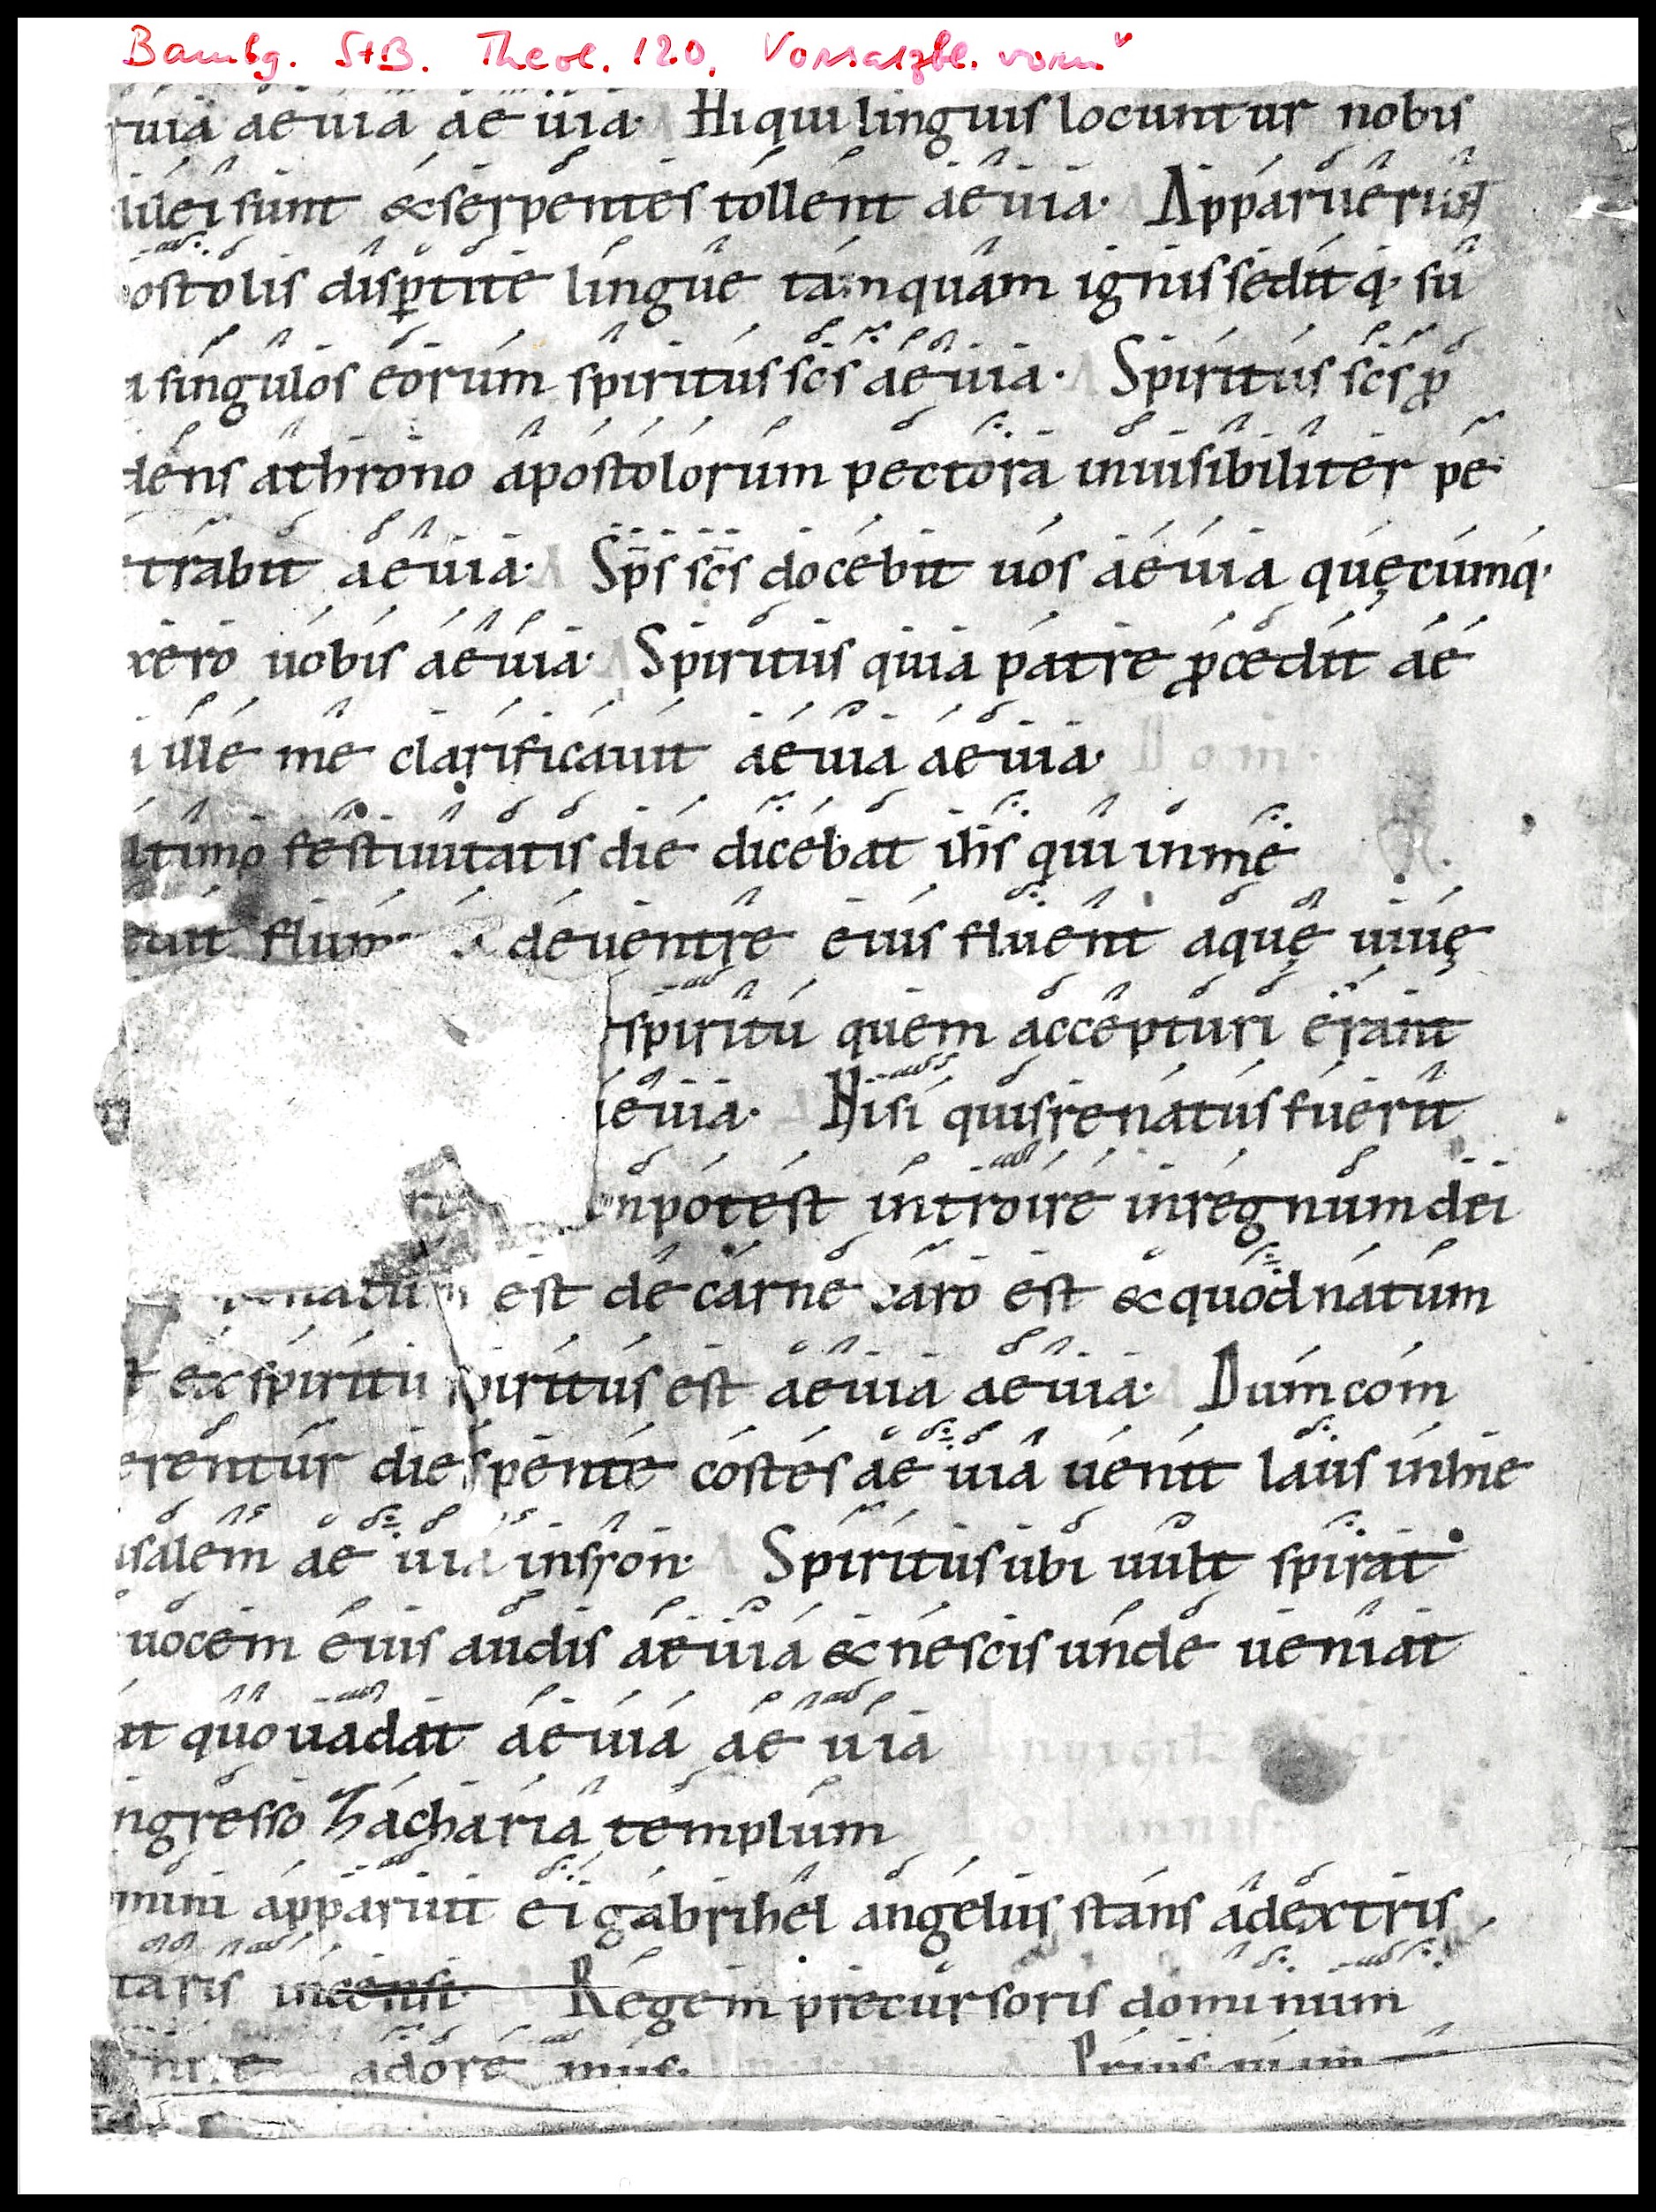 Bambg. StB. Theol. 120. Vorsatzbl. vorn v
uia aeuia aeuia. Hi qui linguis locuntur nobis
lilei sunt & serpentes tollent aeuia. Apparuerunt
ostolis disꝑtite lingue tamquam ignis sedit q. su
a singulos eorum spiritus scs aeuia. Spiritus scs ꝓ
dens athrono apostolorum pectora inuisibiliter pe
trabit aeuia. Sps scs docebit uos aeuia quęcumq.
xero uobis aeuia. Spiritus quia patre ꝓcedit ae
i ille me clarificauit aeuia aeuia.
ltimo festiuitatis die dicebat ihs qui inme
flum deuentre eius fluent aquę uiuę
spiritu quem accepturi erant
euia. Nisi quis renatus fuerit
npotest introire inregnum dei
natum est de carne caro est & quod natum
t ex spiritu spiritus est aeuia aeuia. Dum com
erentur dies pente costes aeuia uenit laus inhie
usalem aeuia insyon. Spiritus ubi uult spirat
uocem eius audis aeuia & nescis unde ueniat
ut quo uadat aeuia aeuia
ngresso Zacharia templum
mini apparuit ei gabrihel angelus stans adextris
taris incensi. Regem precursoris dominum
nite adoremus.